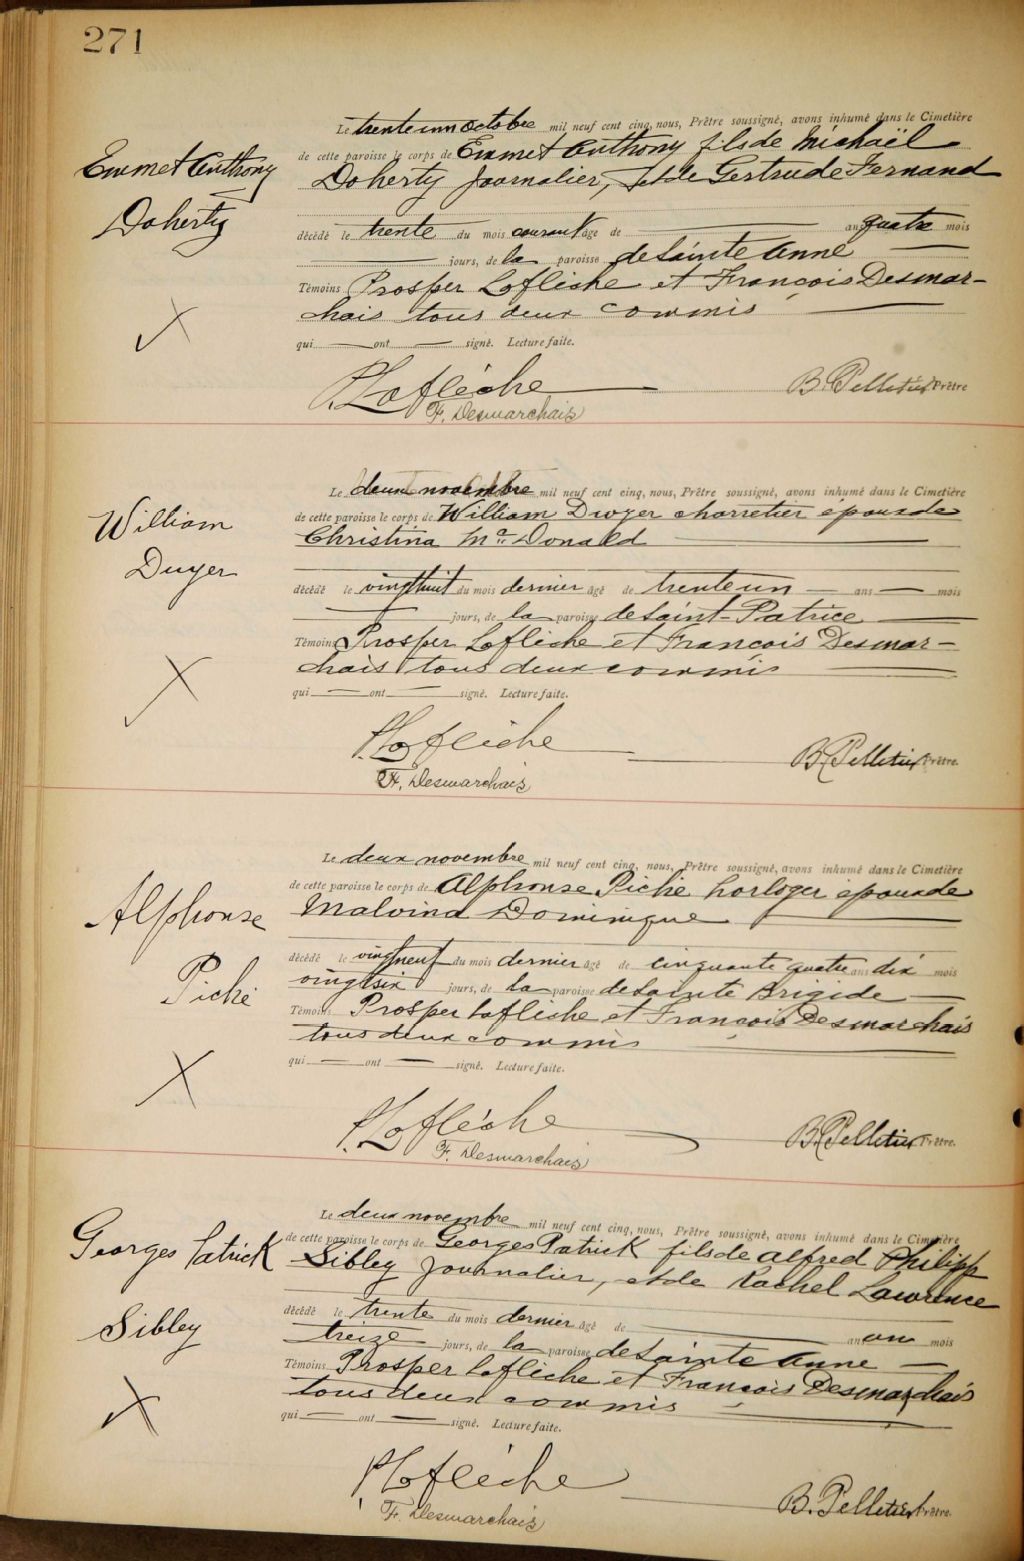 271
Le trente un octobre mil neuf cent cinq, nous, Prêtre soussigné, avons inhumé dans le Cimetière
de cette paroisse le corps de Emmet Anthony fils de Michaël
Doherty journalier, et de Gertrude Fernand
décédé le trente du mois courant âgé de — an quatre mois
— jours, de la paroisse de Sainte Anne
Témoins Prosper Laflèche et François Desmar-
chais tous deux commis —
qui — ont — signé. Lecture faite.
Emmet Anthony
Doherty
P. Laflèche
F. Desmarchais
B. Pelletier Prêtre
Le deux novembre mil neuf cent cinq, nous, Prêtre soussigné, avons inhumé dans le Cimetière
de cette paroisse le corps de William Dwyer charretier époux de
Christina Mc Donald
décédé le vingt huit du mois dernier âgé de trente un — ans — mois
— jours, de la paroisse de Saint-Patrice —
Témoins Prosper Laflèche et François Desmar-
chais tous deux commis
qui — ont — signé. Lecture faite.
William
Dwyer
P. Laflèche
F. Desmarchais
B. Pelletier Prêtre.
Le deux novembre mil neuf cent cinq, nous, Prêtre soussigné, avons inhumé dans le Cimetière
de cette paroisse le corps de Alphonse Piché horloger époux de
Malvina Dominique
décédé le vingt neuf du mois dernier âgé de cinquante quatre ans dix mois
vingt six jours, de la paroisse de Sainte Brigide —
Témoins Prosper Laflèche et François Desmarchais
tous deux commis
qui — ont — signé. Lecture faite.
Alphonse
Piché
P. Laflèche
F. Desmarchais
B. Pelletier Prêtre.
Le deux novembre mil neuf cent cinq, nous, Prêtre soussigné, avons inhumé dans le Cimetière
de cette paroisse le corps de Georges Patrick fils de Alfred Philipp
Sibley journalier, et de Rachel Lawrence
décédé le trente du mois dernier âgé de — an un mois
treize jours, de la paroisse de Sainte Anne —
Témoins Prosper Laflèche et François Desmarchais
tous deux commis
qui — ont — signé. Lecture faite.
Georges Patrick
Sibley
P. Laflèche
F. Desmarchais
B. Pelletier Prêtre.